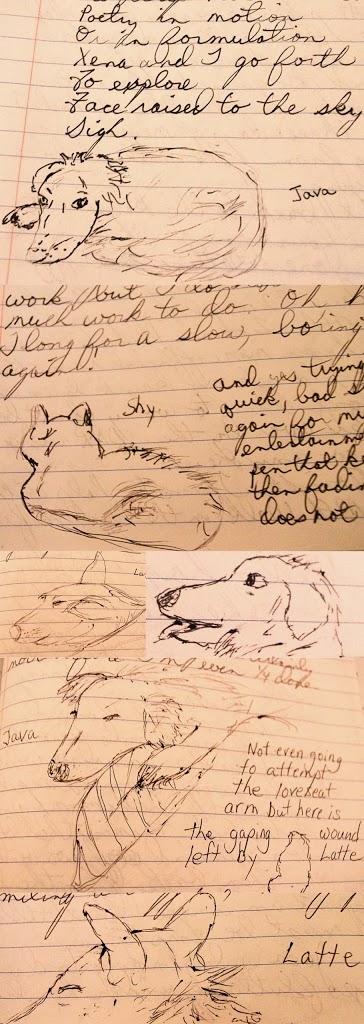 Poetry in motion
Or in formulation
Xena and I go forth
To explore
Face raised to the sky
Sigh.
Java
work but I do
much work to do. Oh
I long for a slow, boring
again!
and yes trying
quick, bad
again for
Shy
pen that
then fadin
does not
La
Java
Not even going
to attempt
the loveseat
arm but here is
the gaping wound
left by Latte
Latte